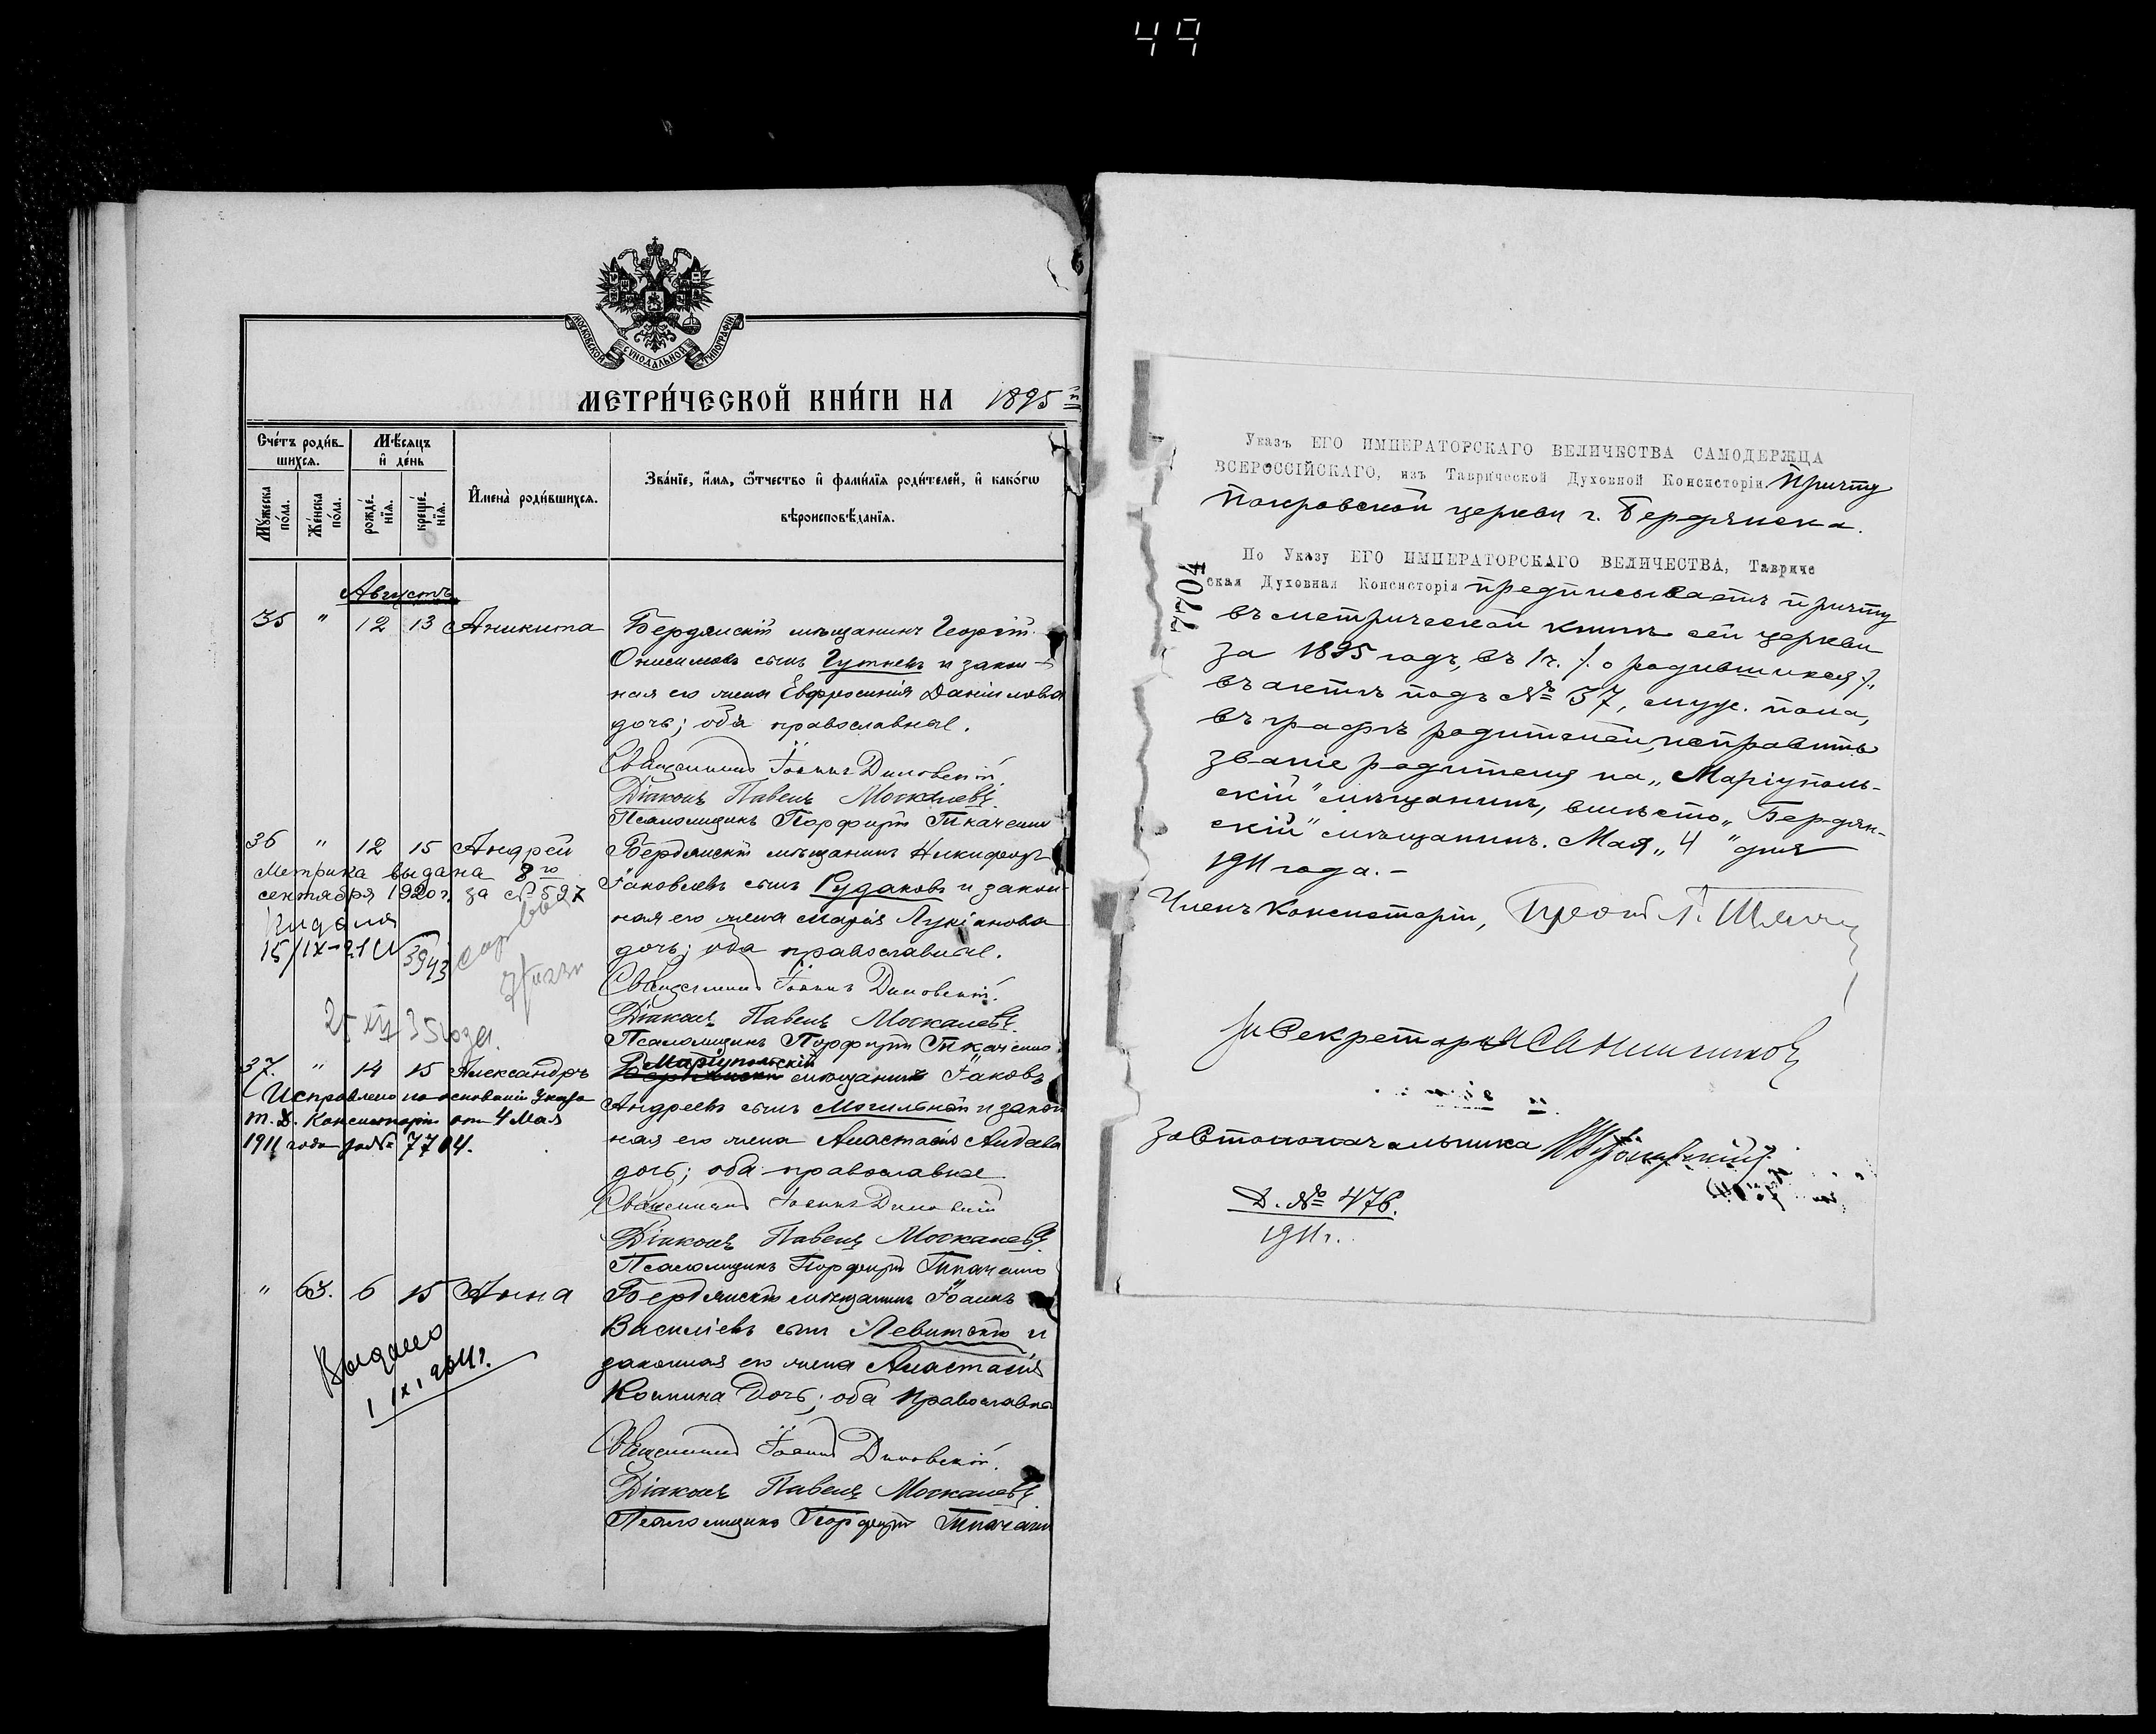 49
МОСКОВСКОЙ СѴНОДАЛЬНОЙ ТИПОГРАФІИ
МЕТРИ́ЧЕСКОЙ КНИ́ГИ НА 1895
Сче́тъ роди́в-
шихся.
Мѣ́сяцъ
и҆ де́нь
И҆мена̀ роди́вшихся.
Зва́нїе, и҆́мя, ѻ҆́тчество и҆ фами́лїя роди́телей, и҆ како́гѡ
вѣроисповѣ́данїя.
Мꙋ́жеска
по́ла.
Же́нска
по́ла.
рожде́
нїя.
креще́
нїя.
Августъ
35 " 12 13 Аникита
Бердянскій мѣщанинъ Георгій
Онисимовъ сынъ Гутневъ и закон-
ная его жена Евфросинія Даніилова
дочь; оба православные.
Священникъ Іоаннъ Диковскій.
Діаконъ Павелъ Москалевъ.
Псаломщикъ Порфирій Ткаченко
36 " 12 15 Андрей
Метрика выдана 8го
сентября 1920 г. за № 527
15/IX-21
3943
25 XII 35 года.
Бердянскій мѣщанинъ Никифоръ
Іаковлевъ сынъ Рудаковъ и закон-
ная его жена Марія Лукіанова
дочь; оба православные.
Священникъ Іоаннъ Диковскій.
Діаконъ Павелъ Москалевъ.
Псаломщикъ Порфирій Ткаченко
37. " 14 15 Александръ
Исправлено на основаніи Указа
Т. Д. Консисторіи отъ 4 Мая
1911 года за № 7704.
Маріупольскій
Бердянскій мѣщанинъ Іаковъ
Андреевъ сынъ Могильный и закон
ная его жена Анастасія Аидава
дочь; оба православные
Священникъ Іоаннъ Диковскій
Діаконъ Павелъ Москалевъ.
Псаломщикъ Порфирій Ткаченко
" 63. 6 15 Анна
Выдано
1 IX
Бердянскій мѣщанинъ Іоаннъ
Василіевъ сынъ Левитскій и
законная его жена Анастасія
Космина дочь; оба православные
Священникъ Іоаннъ Диковскій.
Діаконъ Павелъ Москалевъ
Псаломщикъ Порфирій Ткаченко
Указъ ЕГО ИМПЕРАТОРСКАГО ВЕЛИЧЕСТВА САМОДЕРЖЦА
ВСЕРОССІЙСКАГО, изъ Таврической Духовной Консисторіи Причту
Покровской церкви г. Бердянска.
7704
По Указу ЕГО ИМПЕРАТОРСКАГО ВЕЛИЧЕСТВА, Тавриче
ская Духовная Консисторія предписываетъ причту
въ метрической книгѣ сей церкви
за 1895 годъ, въ 1 ч. /. о родившихся /.
въ актѣ подъ № 37, муж. пола,
въ графѣ родителей, исправить
званіе родителя на „Маріуполь-
скій" мѣщанинъ, вмѣсто „Бердян-
скій" мѣщанинъ. Мая „4" дня
1911 года.-
Членъ Консисторіи,
За Секретаря
За Столоначальника
Д. № 476.
1911 г.